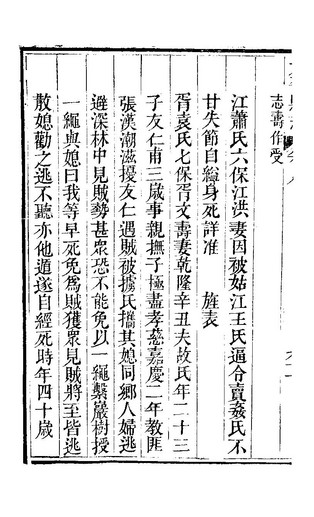 志壽作受
江蕭氏六保江洪妻因被姑江王氏逼令賣姦氏不
甘失節自縊身死詳准　旌表
胥袁氏七保胥文壽妻乾隆辛丑夫故氏年二十三
子友仁甫三歲事親撫子極盡孝慈嘉慶二年教匪
張漢潮滋擾友仁遇賊被擄氏攜其媳同鄉人婦逃
避深林中見賊勢甚衆恐不能免以一繩繫巖樹授
一繩與媳曰我等早死免爲賊獲衆見賊將至皆逃
散媳勸之逃不聽亦他遁遂自經死時年四十歲